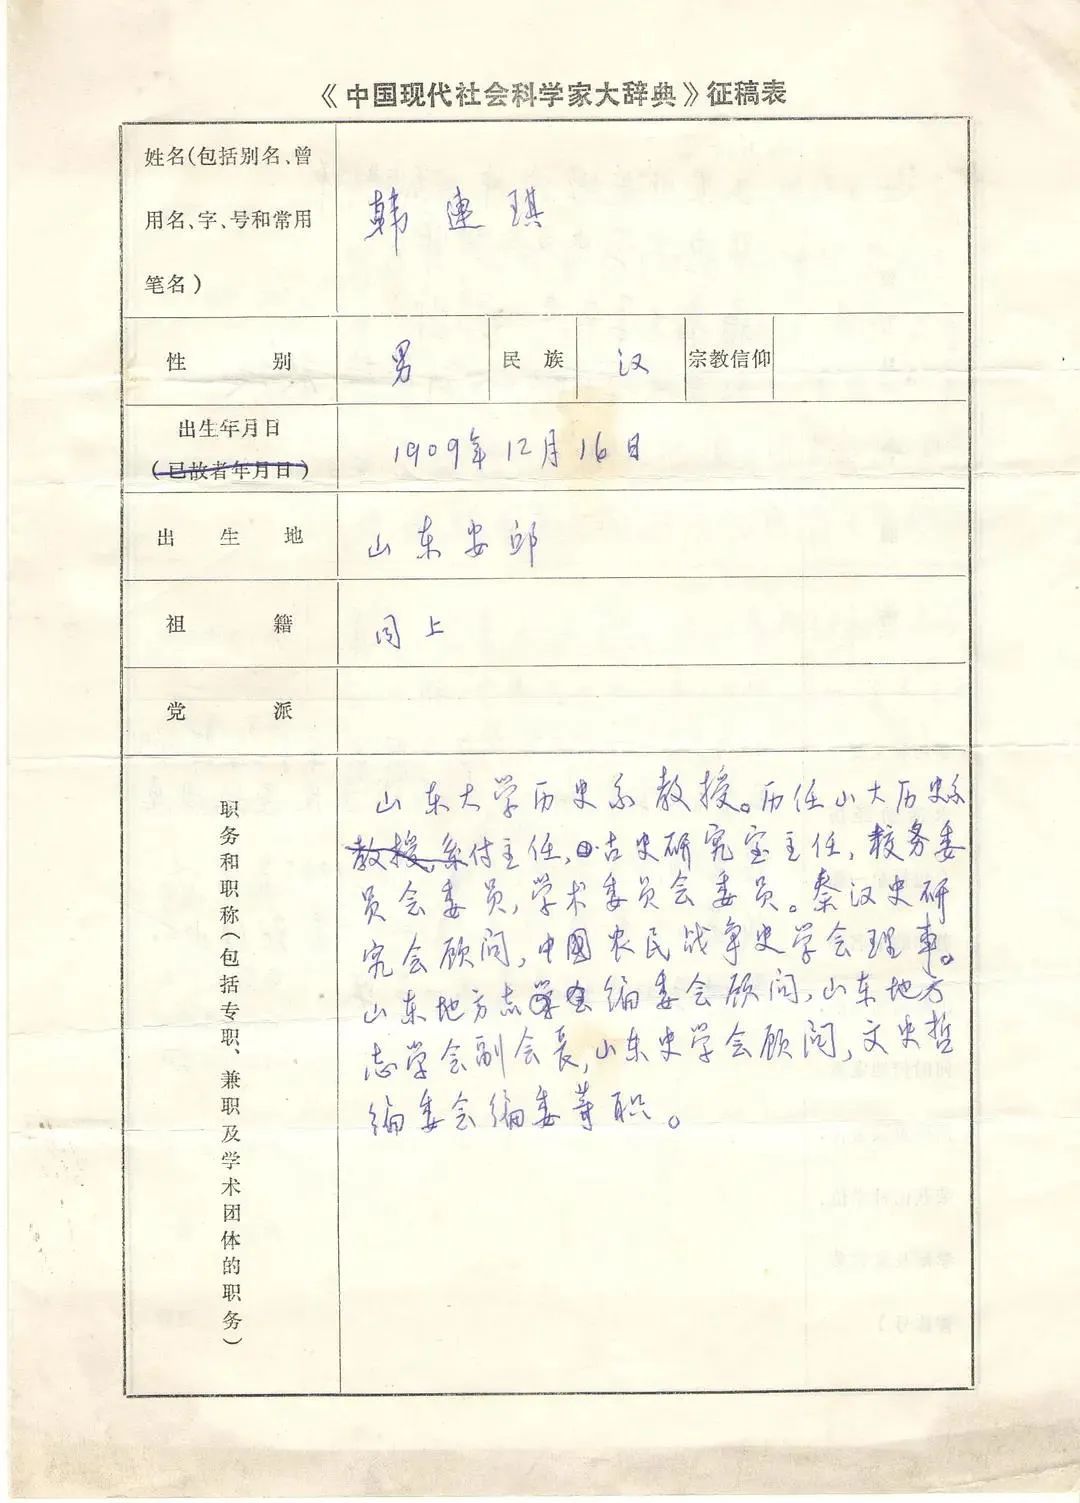 《中国现代社会科学家大辞典》征稿表
姓名(包括别名、曾
用名、字、号和常用
笔名)
韩连琪
性别
男
民族
汉
宗教信仰
出生年月日
(已故者年月日)
1909年12月16日
出生地
山东安邱
祖籍
同上
党派
职务和职称(包括专职、兼职及学术团体的职务)
山东大学历史系教授。历任山大历史系
教授,系付主任,古史研究室主任,校务委
员会委员,学术委员会委员。秦汉史研
究会顾问,中国农民战争史学会理事。
山东地方志编委会顾问,山东地方
志学会副会长,山东史学会顾问,文史哲
编委会编委等职。